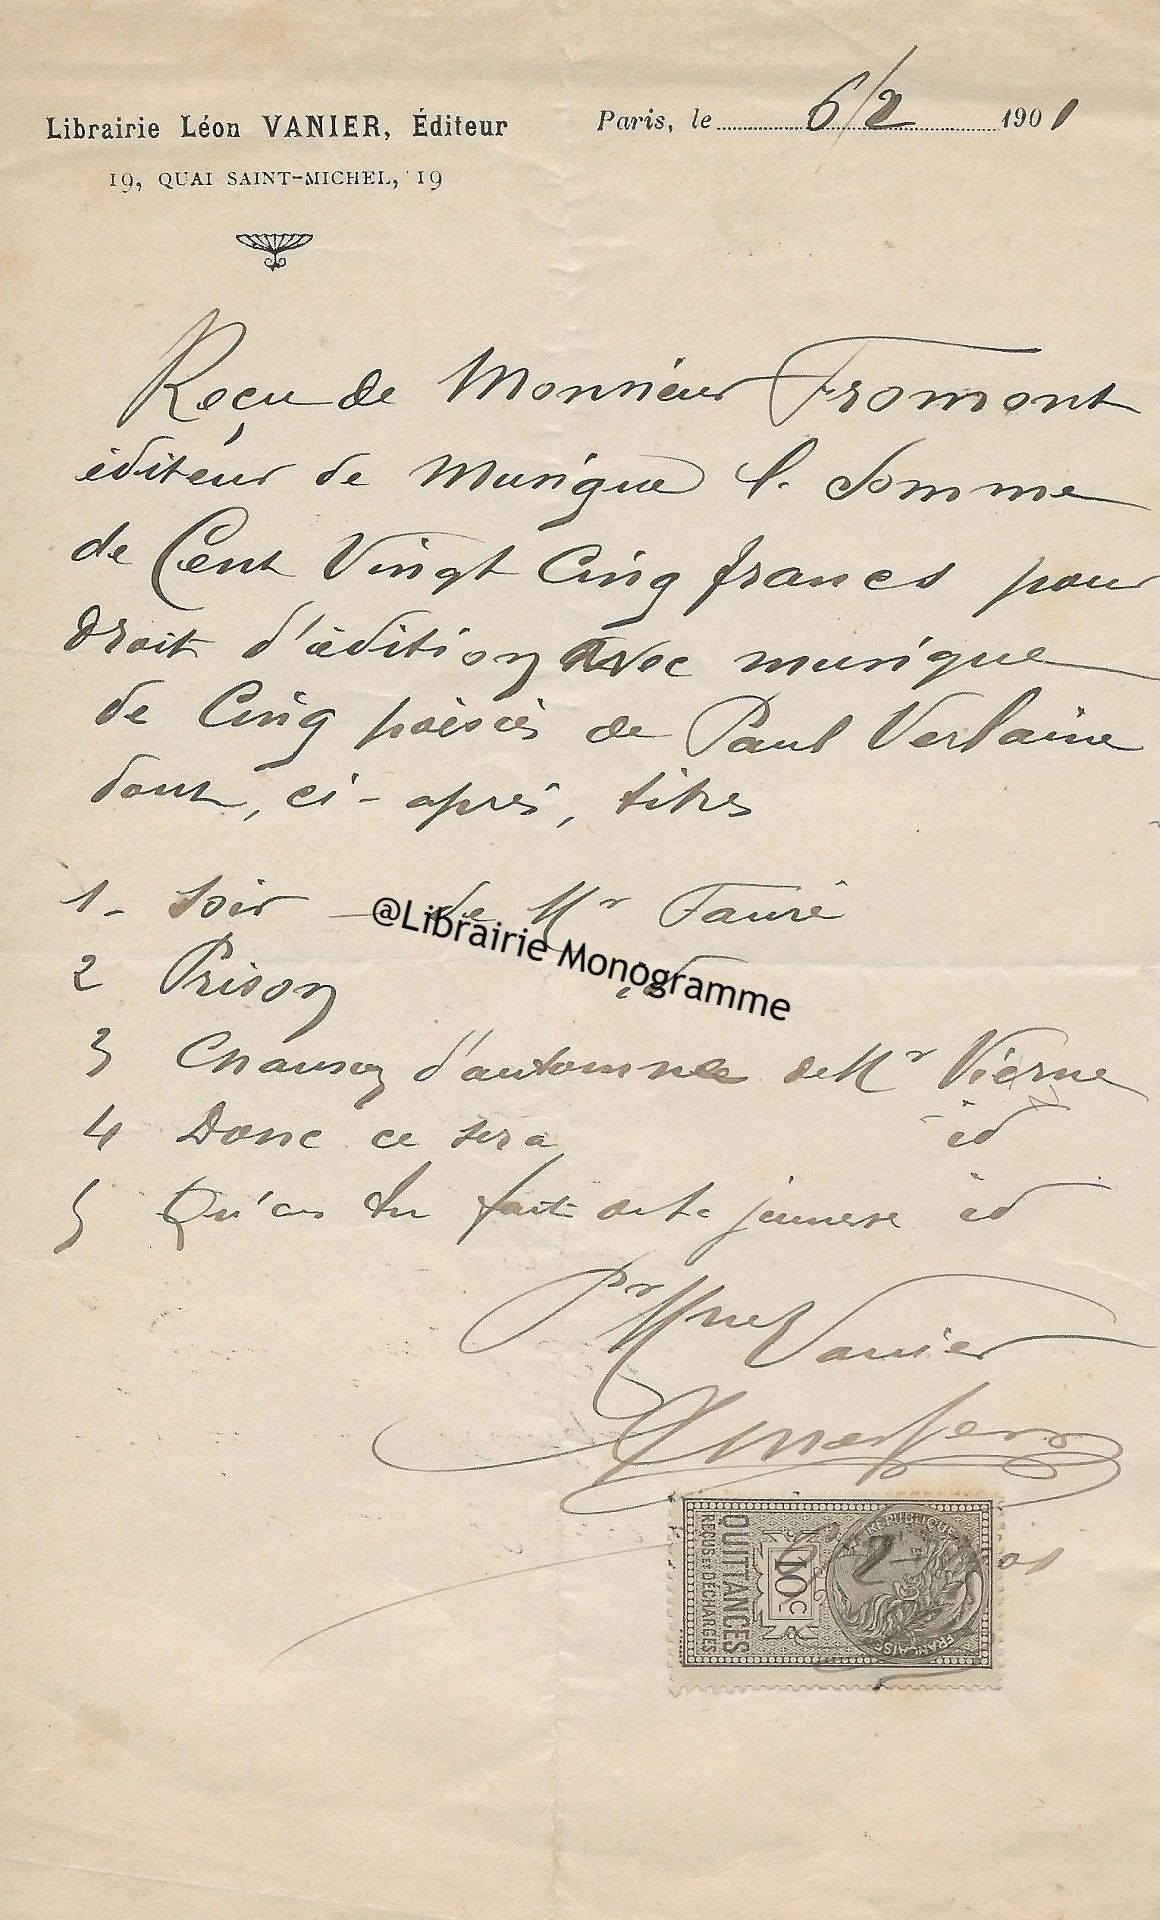 Librairie Léon VANIER, Éditeur
19, QUAI SAINT-MICHEL, 19
Paris, le 6/2 1901
Reçu de Monsieur Fromont
éditeur de Musique la Somme
de Cent Vingt Cinq francs pour
droit d'édition avec musique
de Cinq poésies de Paul Verlaine
dont, ci-après, titres
1 - Soir — de Mr Fauré
2 Prison id
3 Chanson d'automne de Mr Vierne
4 Donc ce sera id
5 Qu'as tu fait de ta jeunesse id
@Librairie Monogramme
Pr Mme Vanier
RÉPUBLIQUE FRANÇAISE
10c
QUITTANCES
REÇUS ET DÉCHARGES
6 2 01